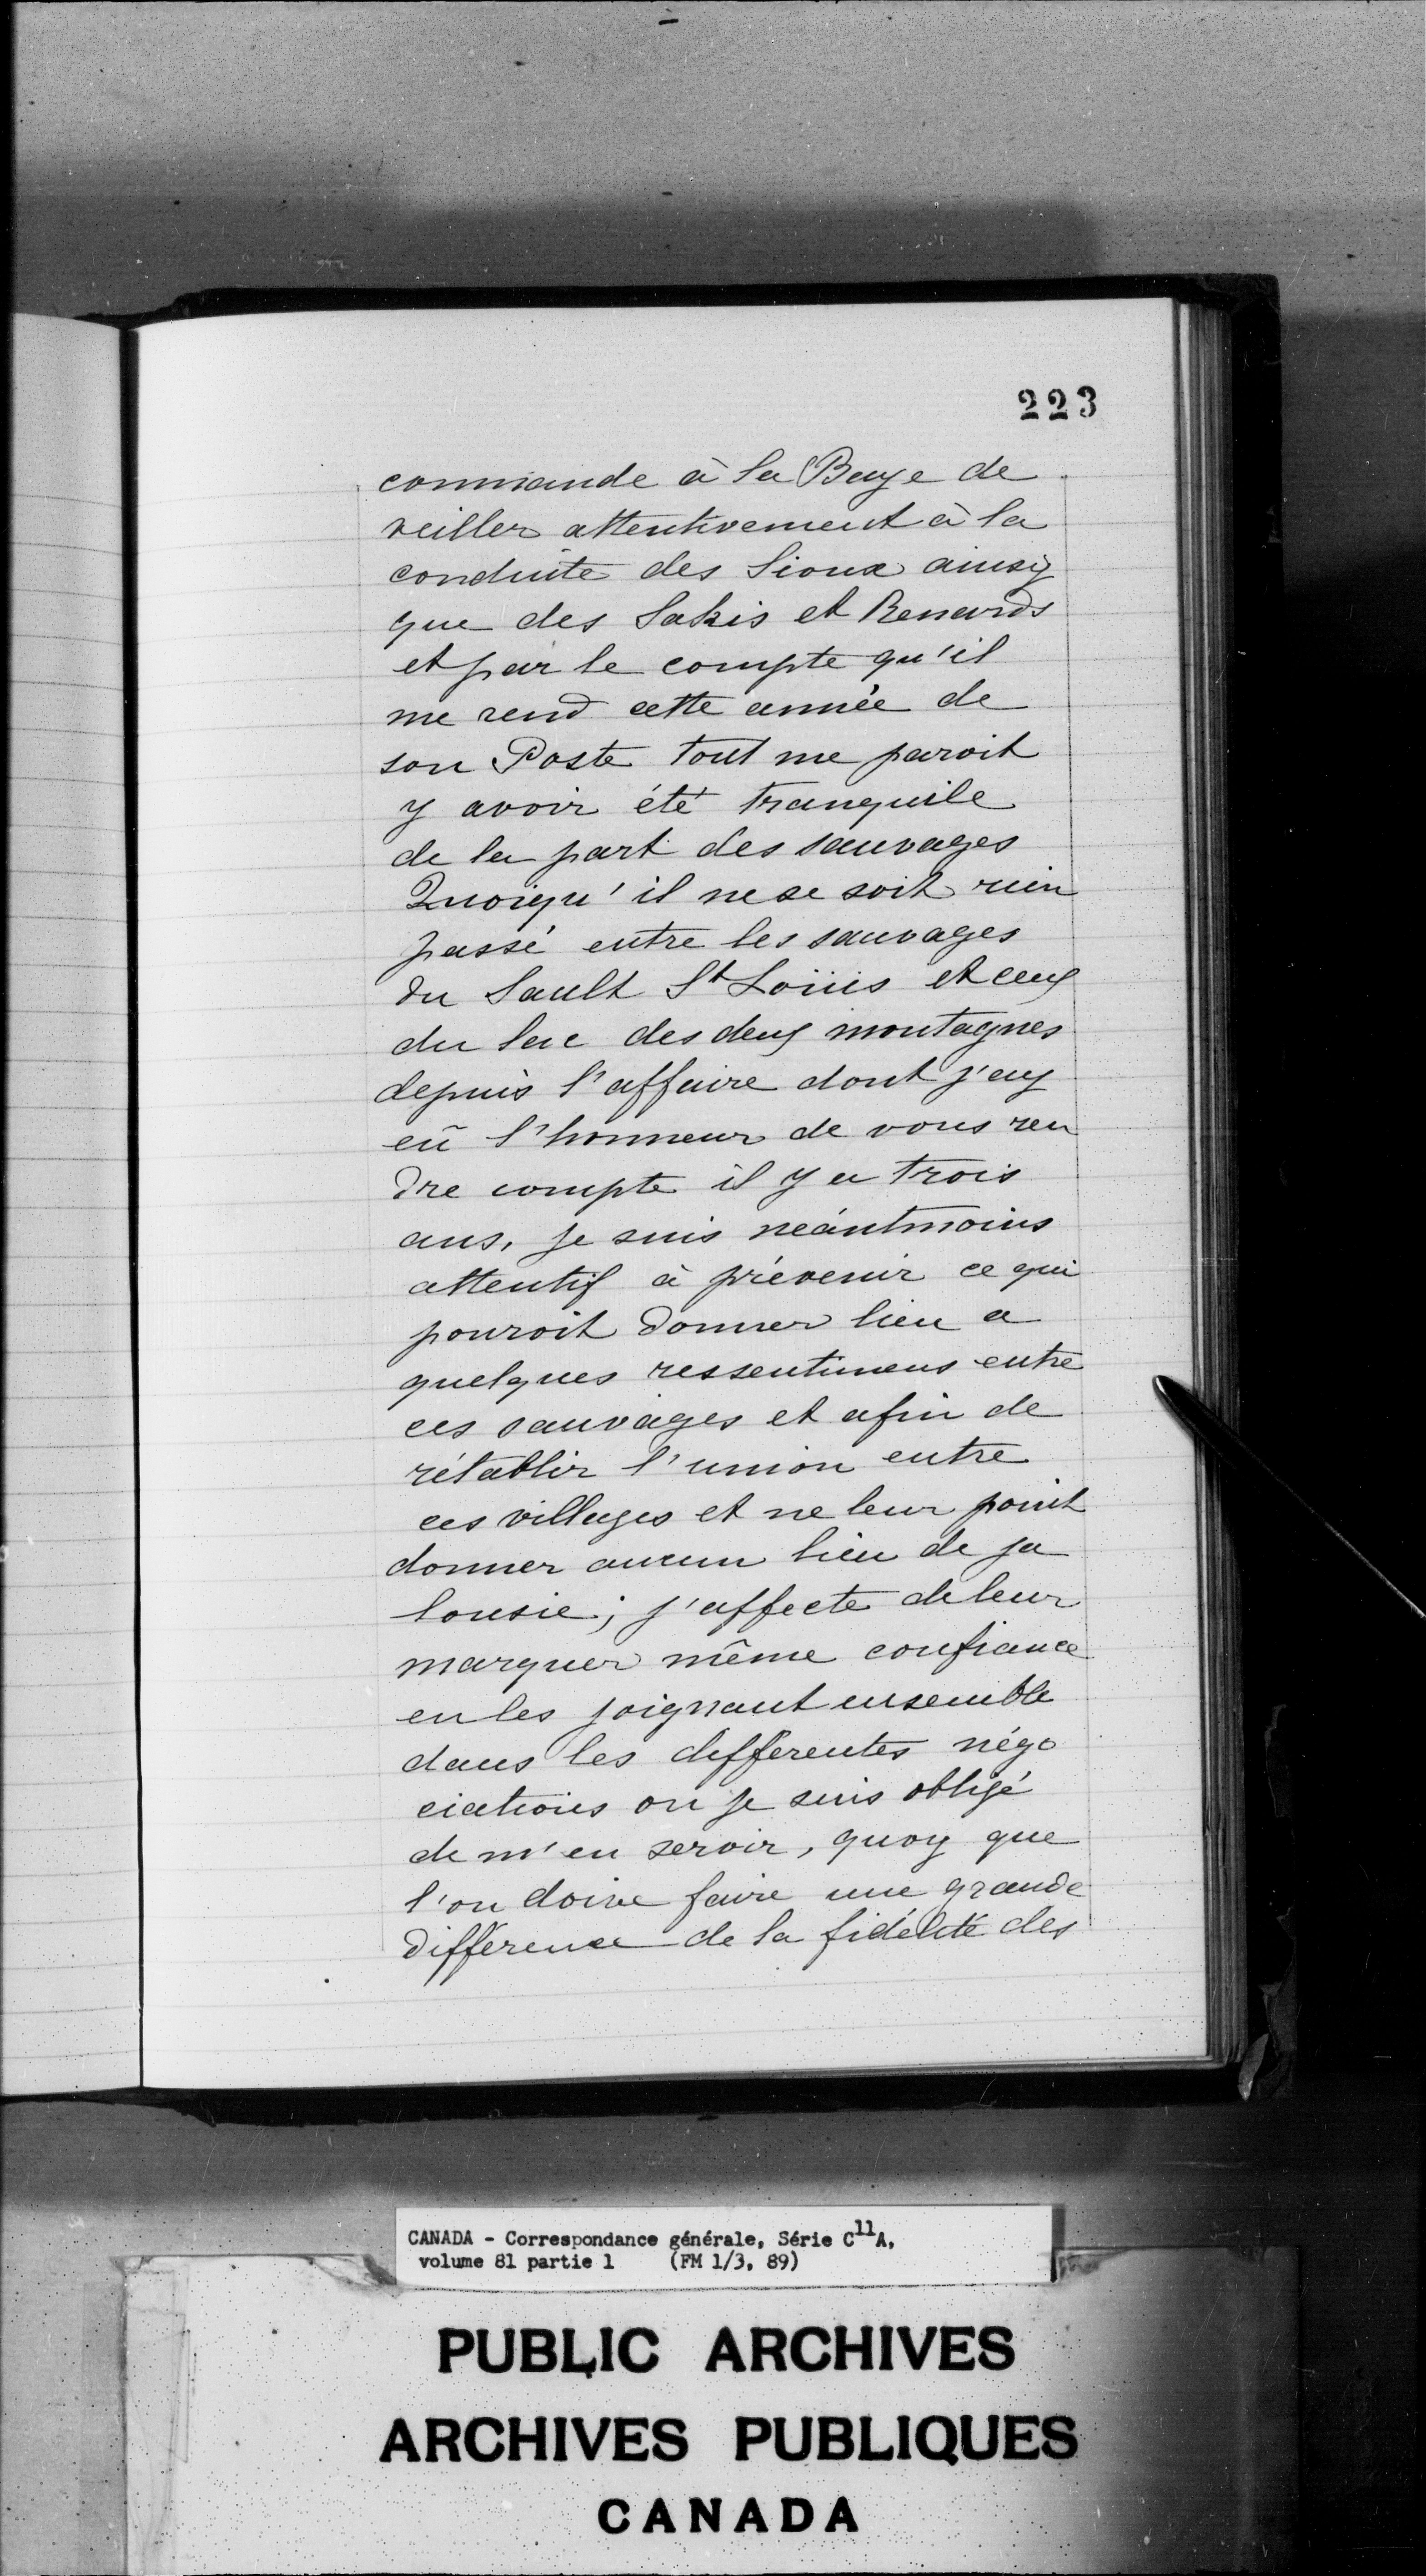 223
commande à la Baye de
veiller attentivement à la
conduite des Sioux ainsy
que des Sakis et Renards
et par le compte qu'il
me rend cette année de
son Poste tout me paroit
y avoir été tranquile
de la part des sauvages
Quoiqu'il ne se soit rien
passé entre les sauvages
du Sault St Loüis et ceux
du lac des deux montagnes
depuis l'affaire dont j'ay
eû l'honneur de vous ren
dre compte il y a trois
ans, je suis néantmoins
attentif à prévenir ce qui
pouroit donner lieu a
quelques ressentimens entre
ces sauvages et afin de
rétablir l'union entre
ces villages et ne leur point
donner aucun lieu de ja
lousie; j'affecte de leur
marquer même confiance
en les joignant ensemble
dans les différentes négo
ciations ou je suis obligé
de m'en servir, quoy que
l'on doive faire une grande
différence de la fidélité des
CANADA - Correspondance générale, Série C11A,
volume 81 partie 1 (FM 1/3, 89)
PUBLIC ARCHIVES
ARCHIVES PUBLIQUES
CANADA